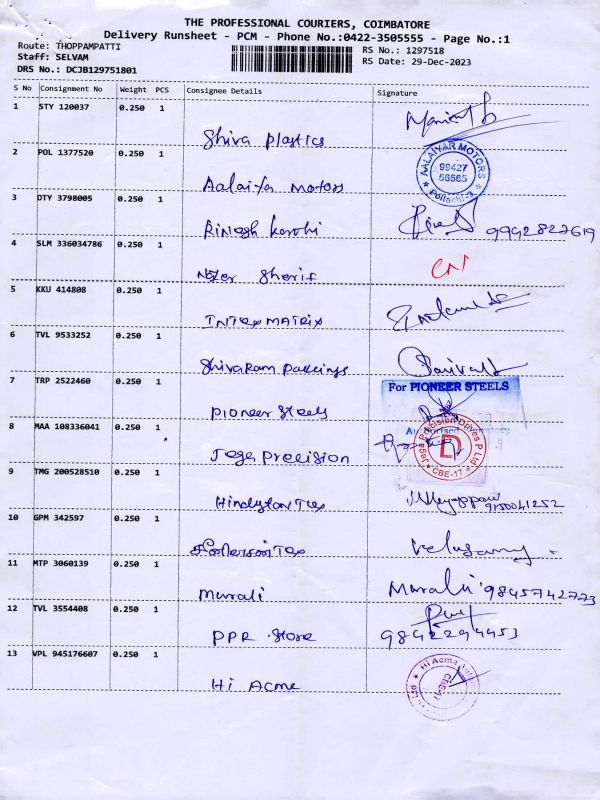 THE PROFESSIONAL COURIERS, COIMBATORE
Delivery Runsheet - PCM - Phone No.:0422-3505555 - Page No.:1
Route: THOPPAMPATTI
Staff: SELVAM
DRS No.: DCJB129751801
RS No.: 1297518
RS Date: 29-Dec-2023
S No Consignment No Weight PCS Consignee Details Signature
1 STY 120037 0.250 1
Shiva plastics
2 POL 1377520 0.250 1
AALAIYAR MOTORS
99427
56565
Pollachi-3
Aalaiya motors
3 DTY 3798005 0.250 1
9942827619
4 SLM 336034786 0.250 1
Sherif
CN
5 KKU 414808 0.250 1
INTEX MATRIX
6 TVL 9533252 0.250 1
Shivaram packings
7 TRP 2522460 0.250 1
For PIONEER STEELS
pioneer steels
8 MAA 108336041 0.250 1
Authorised Signatory
Jega Precision Drives P Ltd
CBE-17
Jega precision
9 TMG 200528510 0.250 1
Hindustan Tex
9150041252
10 GPM 342597 0.250 1
Velusamy
11 MTP 3060139 0.250 1
Murali
Murali 9845742773
12 TVL 3554408 0.250 1
PPR Store
9842294453
13 VPL 945176607 0.250 1
Hi Acme
CBE-17
Hi Acme